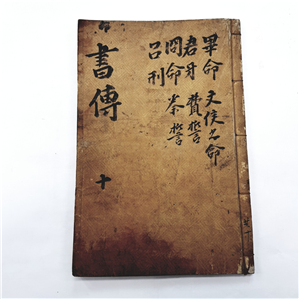 畢命 文侯之命
君牙 費誓
冏命 秦誓
呂刑
書傳 十